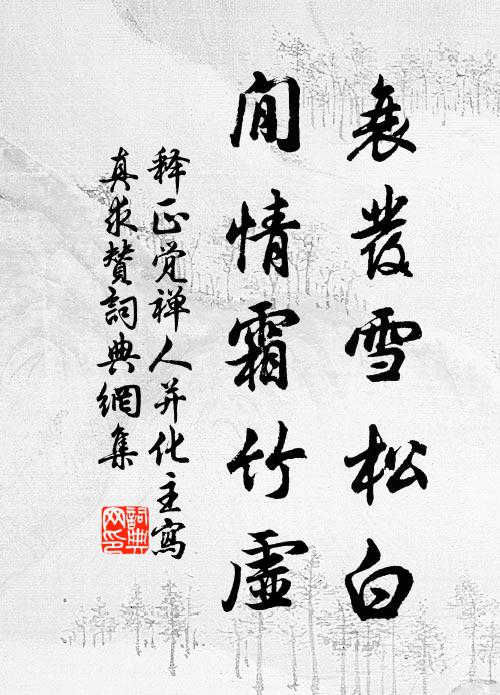 衰發雪松白
閒情霜竹虛
释正觉禅人并化主寫
真求赞詞典網集
詞典网印